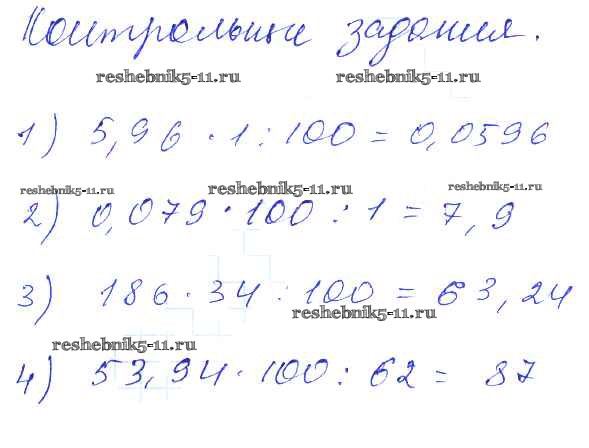 Контрольные задания.
reshebnik5-11.ru reshebnik5-11.ru
1) 5,96 · 1 : 100 = 0,0596
reshebnik5-11.ru reshebnik5-11.ru reshebnik5-11.ru
2) 0,079 · 100 : 1 = 7,9
3) 186 · 34 : 100 = 63,24
reshebnik5-11.ru
reshebnik5-11.ru
4) 53,94 · 100 : 62 = 87